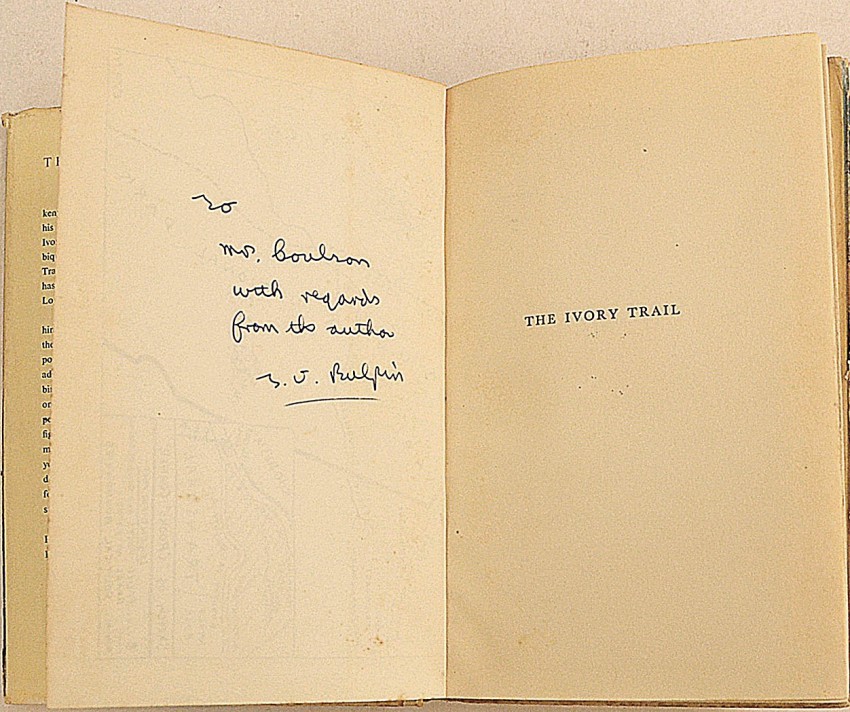 To
Mr. Coulson
with regards
from the author
T. V. Bulpin
THE IVORY TRAIL
ken
his
Ivo
biq
Tra
has
Lo
hin
the
po
ad
bi
or
pe
fig
m
y
d
f
s